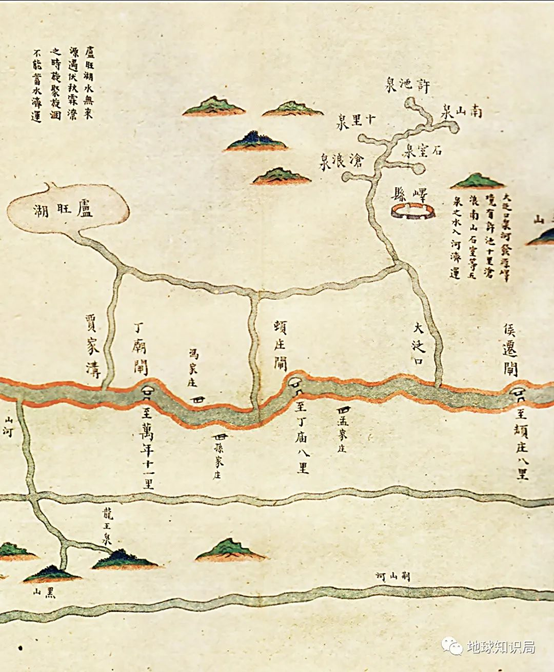 盧旺湖水無來
源遇伏秋霖潦
之時旋聚旋涸
不能蓄水濟運
許池泉
南山泉
十里泉
石室泉
滄浪泉
嶧縣
大泛口泉河發源嶧
境有許池十里滄
浪南山石室等五
泉之水入河濟運
山
盧旺湖
侯遷閘
大泛口
頓庄閘
馮家庄
丁廟閘
賈家溝
至頓庄八里
孟家庄
至丁庙八里
孫家庄
至萬年十一里
山河
龍王泉
黑山
荆山河
地球知识局